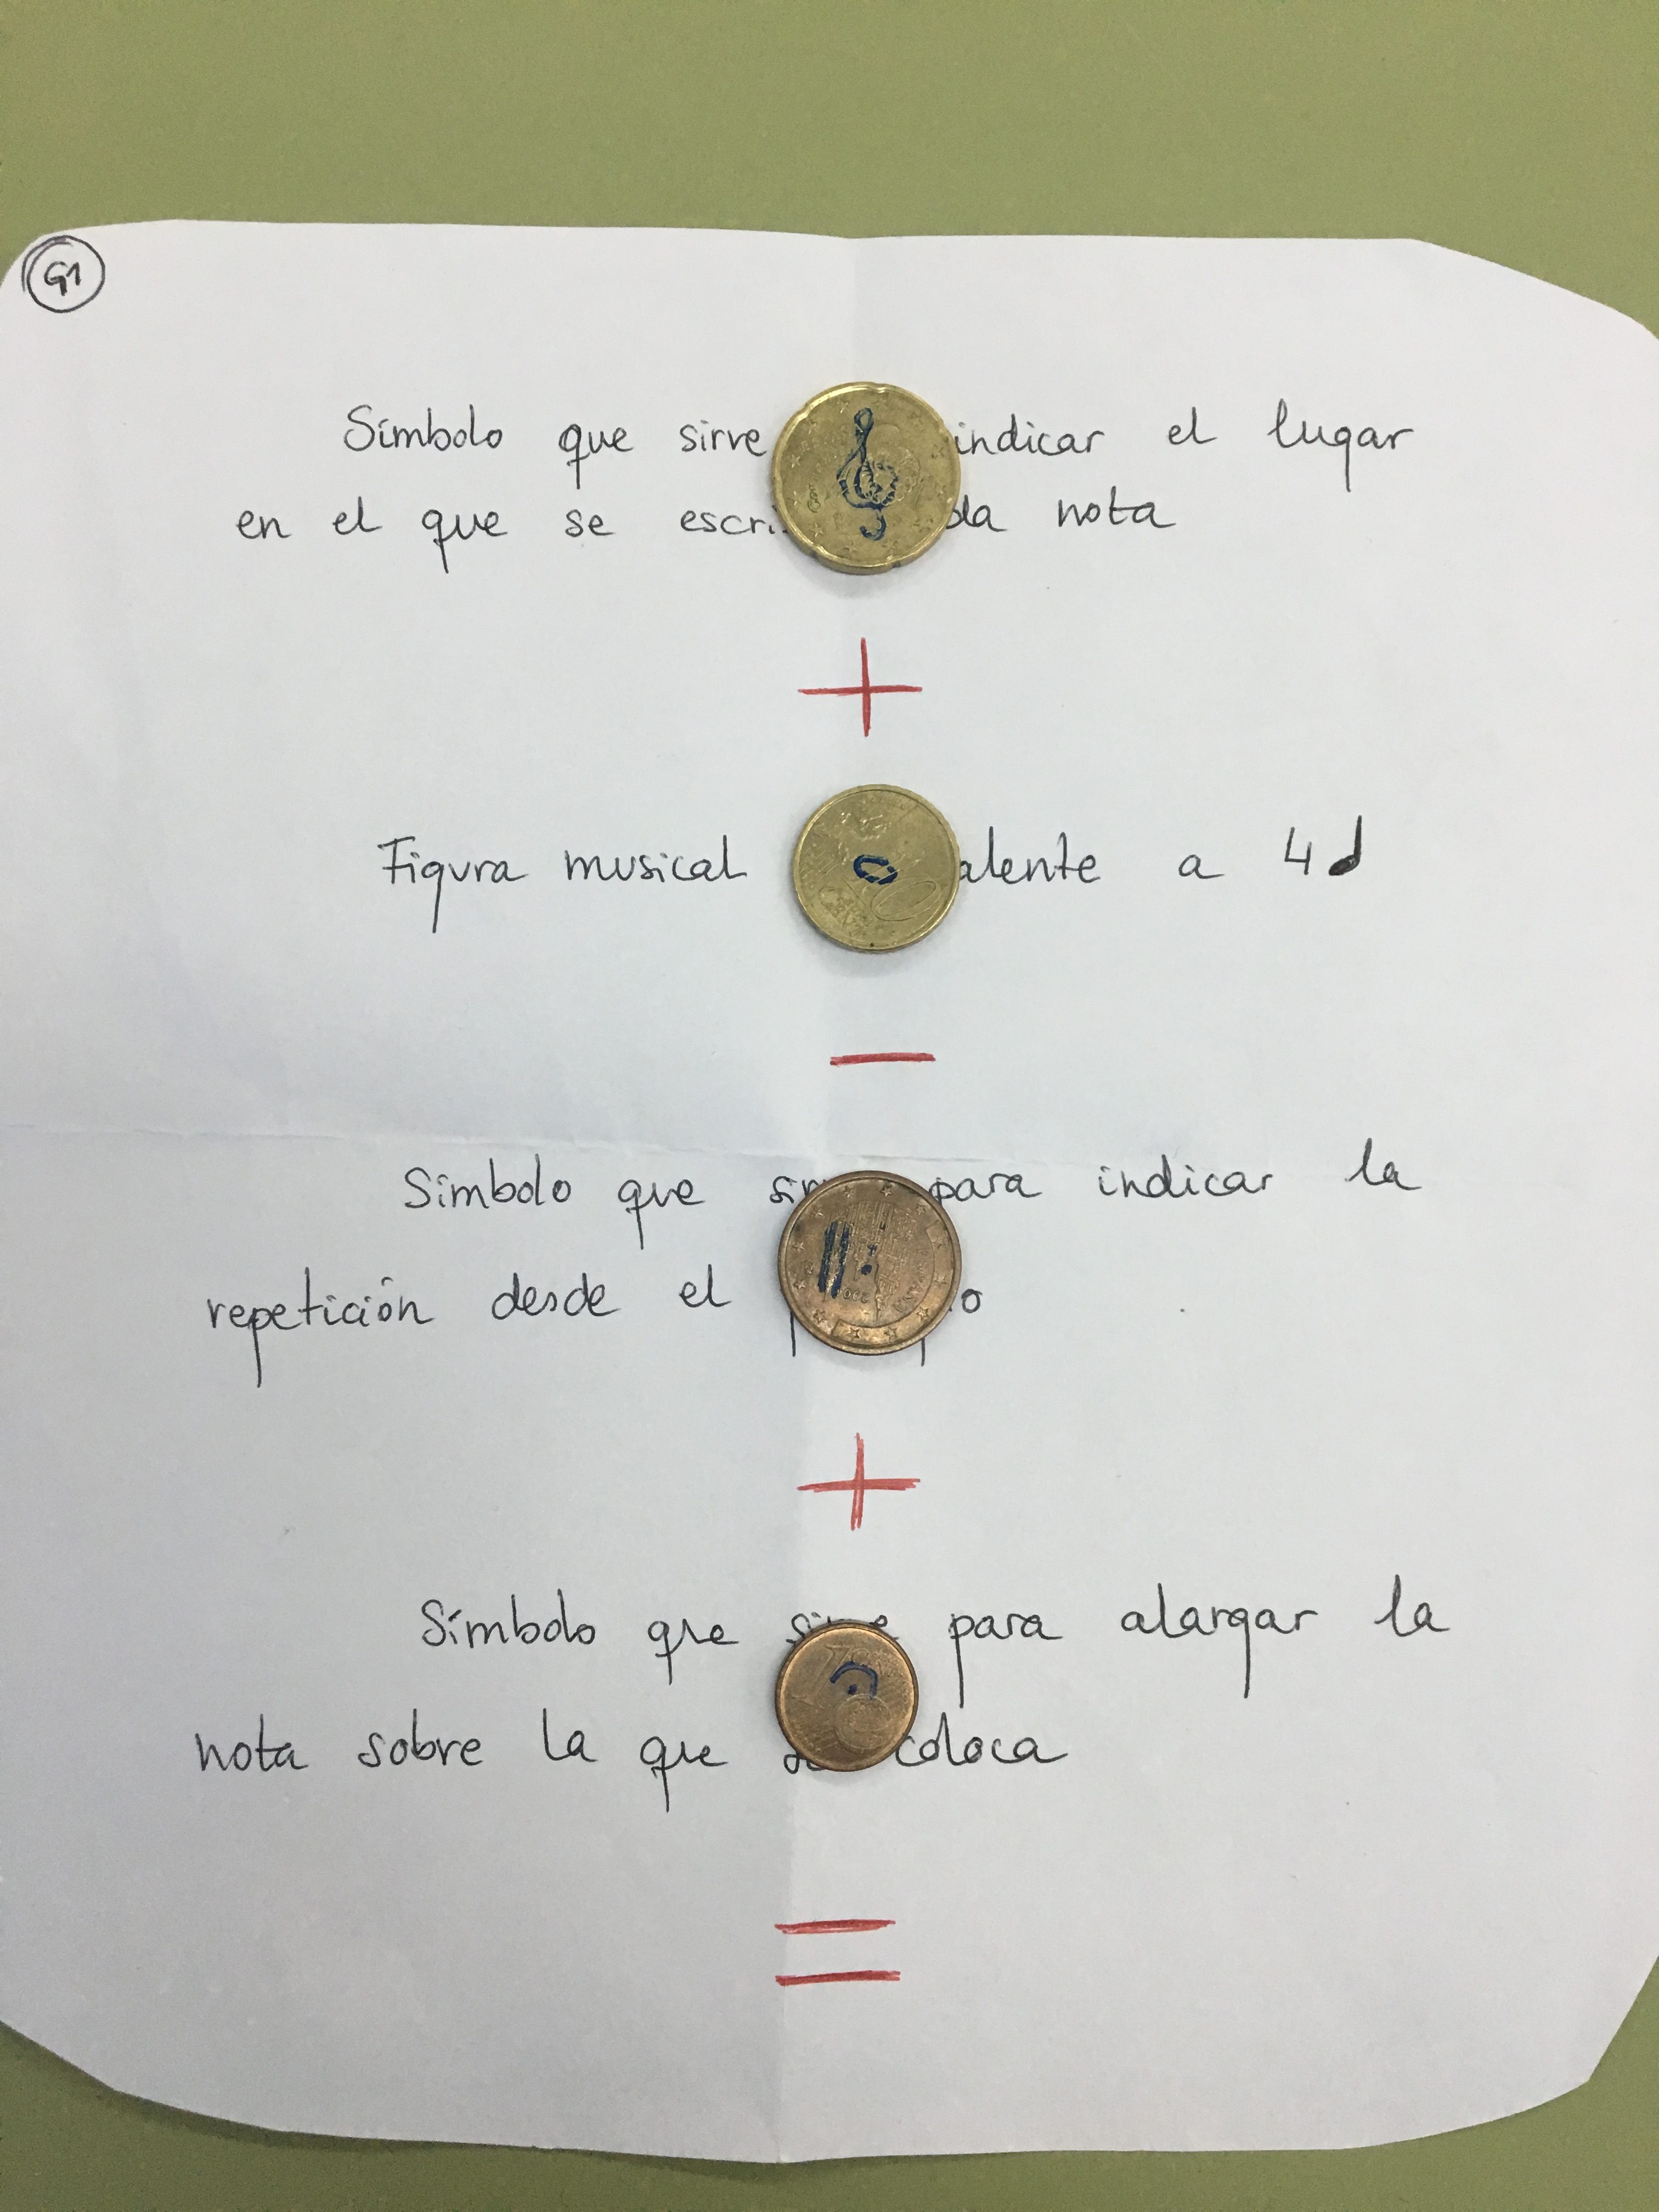 G1
Símbolo que sirve indicar el lugar
en el que se nota
+
Figura musical a 4
−
Símbolo que para indicar la
repetición desde el
+
Símbolo que sirve para alargar la
nota sobre la que coloca
=